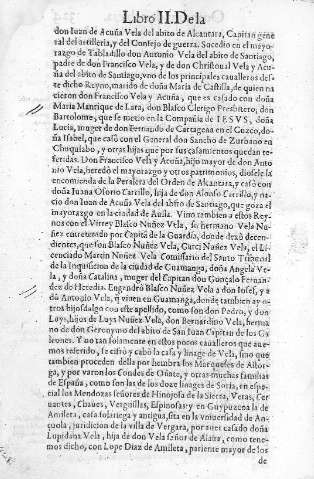 Libro II. De la
don Iuan de Acuña Vela del abito de Alcantara, Capitan gene
ral del artilleria, y del Consejo de guerra. Sucedio en el mayo-
razgo de Tabladillo don Antonio Vela del abito de Santiago,
padre de don Francisco Vela, y de don Christoual Vela y Acu-
ña del abito de Santiago, vno de los principales caualleros des-
te dicho Reyno, marido de doña Maria de Castilla, de quien na
cieron don Francisco Vela y Acuña, que es casado con doña
Maria Manrique de Lara, don Blasco Clerigo Presbitero, don
Bartolome, que se metio en la Compañia de IESVS, doña
Lucia, muger de don Fernando de Cartagena en el Cuzco, do
ña Isabel, que casò con el General don Sancho de Zurbano en
Chuquiabo, y otras hijas que por sus casamientos quedan re-
feridas. Don Francisco Vela y Acuña, hijo mayor de don Auto
nio Vela, heredò el mayorazgo y otros patrimonios, diosele la
encomienda de la Peraleda del Orden de Alcantara, y casò con
doña Iuana Osorio Carrillo, hija de don Alonso Carrillo, y na-
cio don Iuan de Acuña Vela del abito de Santiago, que goza el
mayorazgo en la ciudad de Auila. Vino tambien a estos Rey-
nos con el Virrey Blasco Nuñez Vela, su hermano Vela Nu-
ñez entretenido por Capitã de la Guardia, donde dexò decen-
dientes, que son Blasco Nuñez Vela, Garci Nuñez Vela, el Li-
cenciado Martin Nuñez Vela Comissario del Santo Tribunal
de la Inquisicion de la ciudad de Guamanga, doña Angela Ve-
la, y doña Catalina, muger del Capitan don Gonçalo Fernan-
dez de Heredia. Engendrò Blasco Nuñez Vela a don Iosef, y a
dõ Antonio Vela, q̃ viuen en Guamanga, donde tambien ay o-
tros hijosdalgo con este apellido, como son don Pedro, y don
Luys, hijos de Luys Nuñez Vela, don Bernardino Vela, herma
no de don Geronymo del abito de San Iuan Capitan de los Ga
leones. Y no tan solamente en estos pocos caualleros que aue-
mos referido, se cifrò y cabò la casa y linage de Vela, sino que
tambien proceden della por hembra los Marqueses de Aftor-
ga, y por varon los Condes de Oñate, y otras muchas familias
de España, como son las de los doze linages de Soria, en espe-
cial los Mendozas señores de Hinojosa de la Sierra, Veras, Cer
uantes, Chaues, Verguillas, Espinosas y en Guypuzcoa la de
Amileta, casa solariega y antigua, sita en la vniuersidad de An-
çuola, juridicion de la villa de Vergara, por auer casado doña
Lupidana Vela, hija de don Vela señor de Alaba, como tene-
mos dicho, con Lope Diaz de Amileta, pariente mayor de los
de